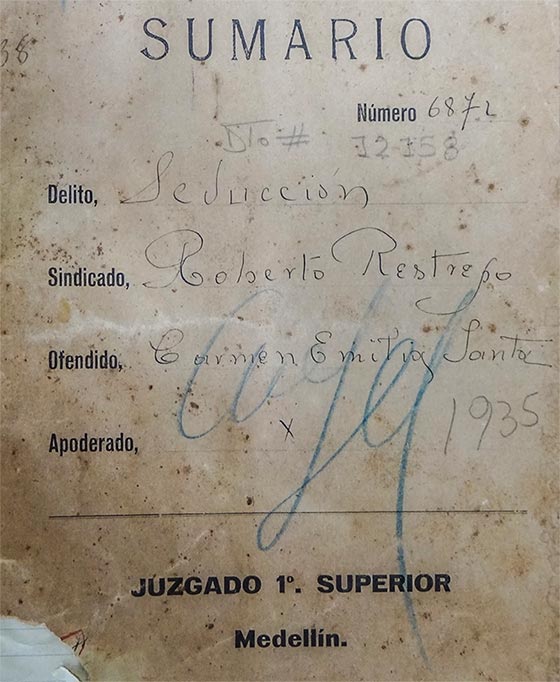 38
SUMARIO
Número 6872
Dto # 12158
Delito, Seducción
Sindicado, Roberto Restrepo
Ofendido, Carmen Emilia Santa
Apoderado, x 1935
JUZGADO 1º. SUPERIOR
Medellín.